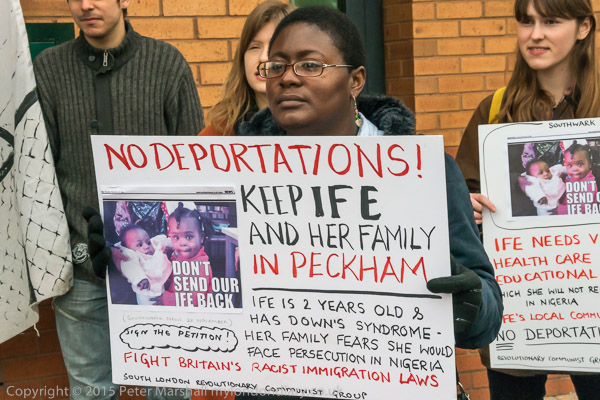 NO DEPORTATIONS!
KEEP IFE
AND HER FAMILY
IN PECKHAM
DON'T
SEND OUR
IFE BACK
SIGN THE PETITION!
IFE IS 2 YEARS OLD &
HAS DOWN'S SYNDROME -
HER FAMILY FEARS SHE WOULD
FACE PERSECUTION IN NIGERIA
FIGHT BRITAIN'S RACIST IMMIGRATION LAWS
SOUTH LONDON REVOLUTIONARY COMMUNIST GROUP
SOUTHWARK
DON'T
SEND OUR
IFE BACK
IFE NEEDS
HEALTH CARE
EDUCATIONAL
WHICH SHE WILL NOT RE
IN NIGERIA
IFE'S LOCAL COMMU
NO DEPORTATIO
REVOLUTIONARY COMMUNIST GROUP
Copyright © 2015 Peter Marshall mylondon